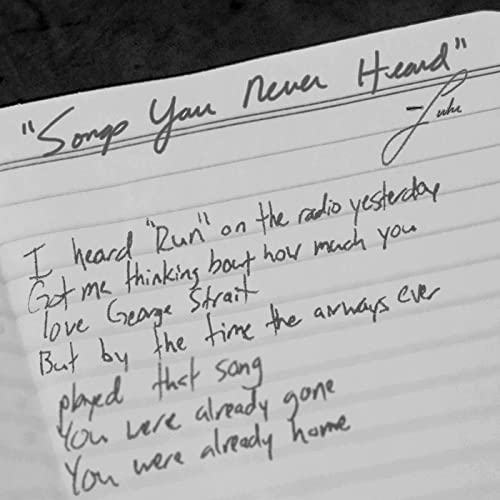 "Songs You Never Heard"
- Luke
I heard "Run" on the radio yesterday
Got me thinking bout how much you
love George Strait
But by the time the airways ever
played that song
You were already gone
You were already home